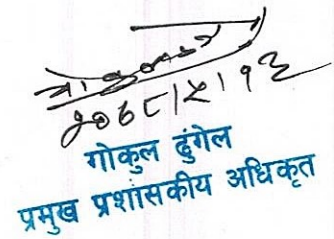 २०७८।५।१३
गोकुल ढुंगेल
प्रमुख प्रशासकीय अधिकृत